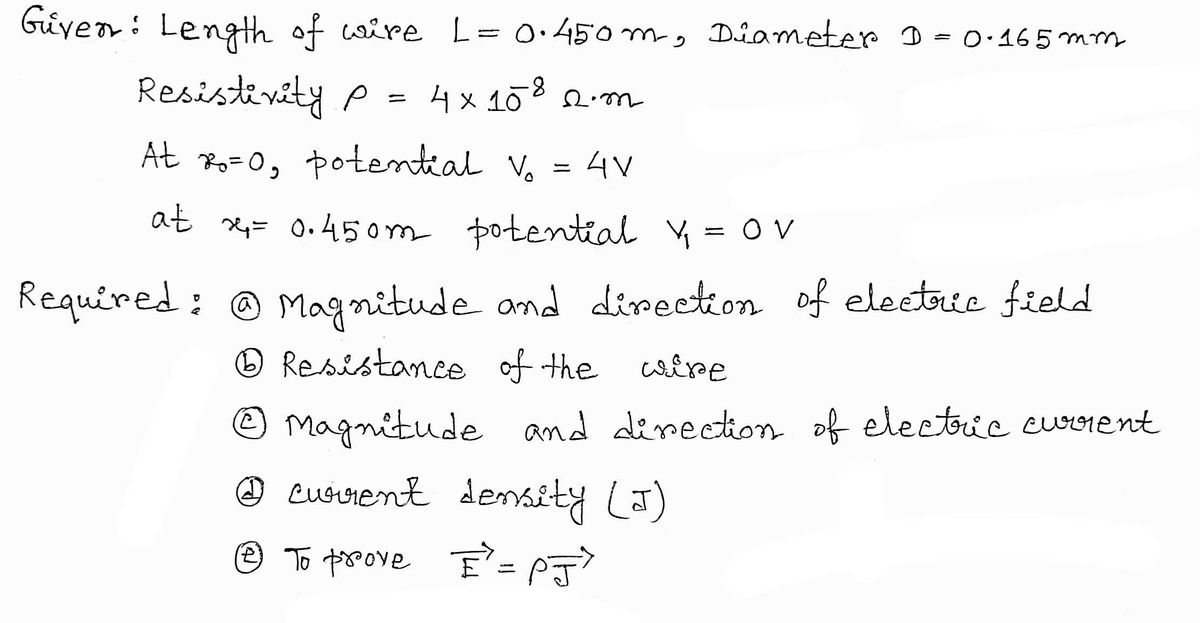 Given : Length of wire L = 0.450 m, Diameter D = 0.165 mm
Resistivity ρ = 4 × 10⁻⁸ Ω.m
At x₀=0, potential V₀ = 4V
at x₁= 0.450m potential V₁ = 0 V
Required : ⓐ Magnitude and direction of electric field
ⓑ Resistance of the wire
ⓒ Magnitude and direction of electric current
ⓓ current density (J)
ⓔ To prove E⃗ = ρJ⃗